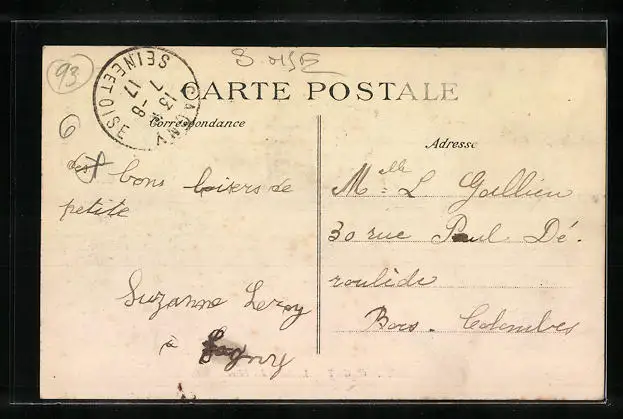 93
S. OISE
GAGNY
SEINE ET OISE
13
17 -8
CARTE POSTALE
6
Correspondance
Adresse
des bons baisers de
petite
Suzanne Leroy
à Gagny
Melle L Gallien
30 rue Paul Dé-
roulède
Bois. Colombes